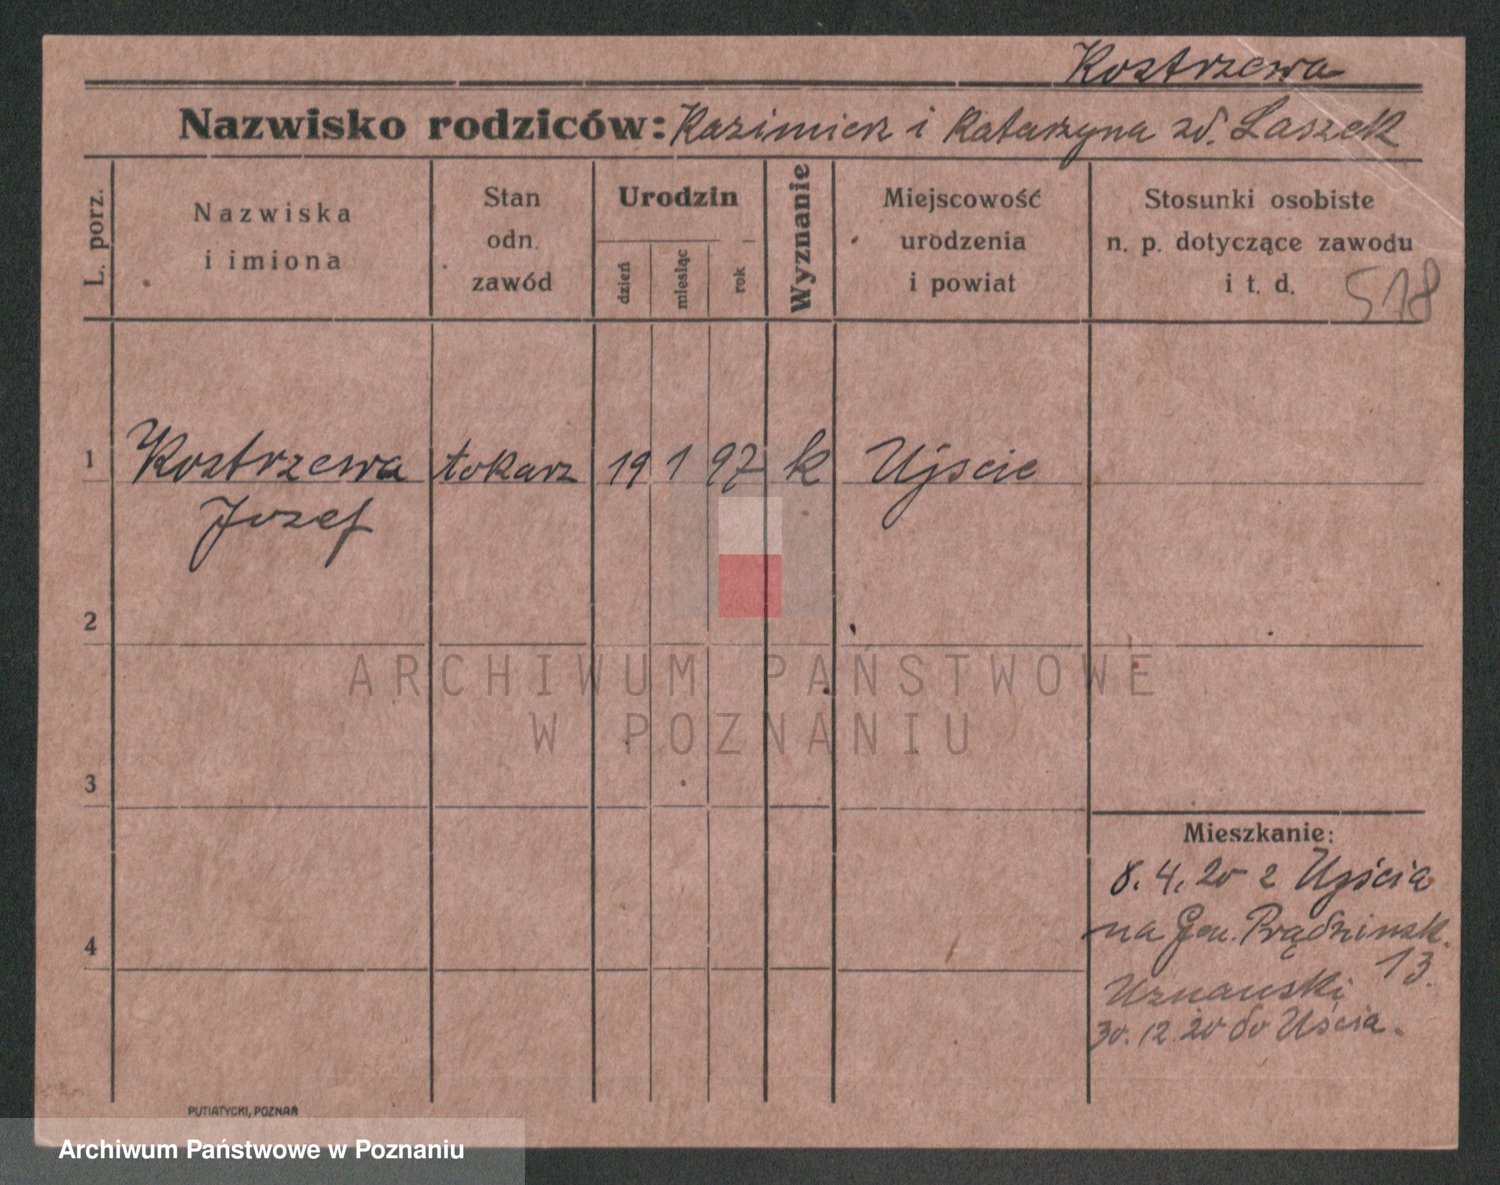 Kostrzewa
Nazwisko rodziców: Kazimierz i Katarzyna zd. Laszek
L. porz.
Nazwiska
i imiona
Stan
odn.
zawód
Urodzin
dzień
miesiąc
rok
Wyznanie
Miejscowość
urodzenia
i powiat
Stosunki osobiste
n. p. dotyczące zawodu
i t. d.
518
1
Kostrzewa
Jozef
tokarz
19
1
97
k
Ujscie
2
3
4
Mieszkanie:
8.4.20 z Ujścia
na Gen. Prądzinsk.
13.
Uznanski
30.12.20 do Uścia.
PUTIATYCKI, POZNAŃ
ARCHIWUM PAŃSTWOWE
W POZNANIU
Archiwum Państwowe w Poznaniu